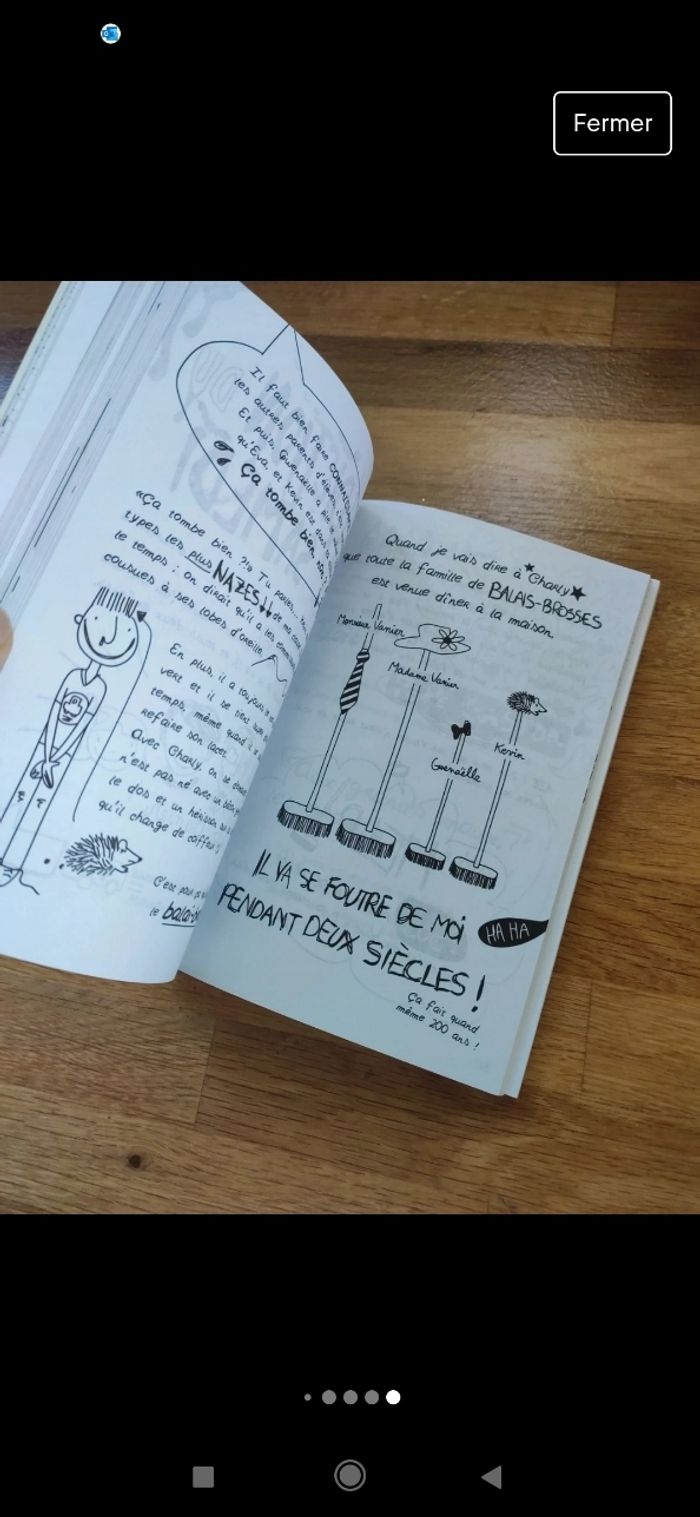 Fermer
Il faut bien faire CONNAISSANCE
les autres parents d'élèves
Et puis, Gwenaëlle a
qu'Eva, et Kevin est dans
Ça tombe bien, non
«Ça tombe bien ?!» Tu parles...
types les plus NAZES!! de ma
le temps : on dirait qu'il a les
cousues à ses lobes d'oreille.
En plus, il a toujours
vert et il se tient
temps, même quand il
refaire son lacet.
Avec Charly, on se
n'est pas né avec un
le dos et un hérisson sur
qu'il change de coiffeur
C'est pour
le balai-
Quand je vais dire à Charly
que toute la famille de BALAIS-BROSSES
est venue dîner à la maison.
Monsieur Vanier
Madame Vanier
Kevin
Gwenaëlle
IL VA SE FOUTRE DE MOI
HA HA
PENDANT DEUX SIÈCLES !
Ça fait quand
même 200 ans !